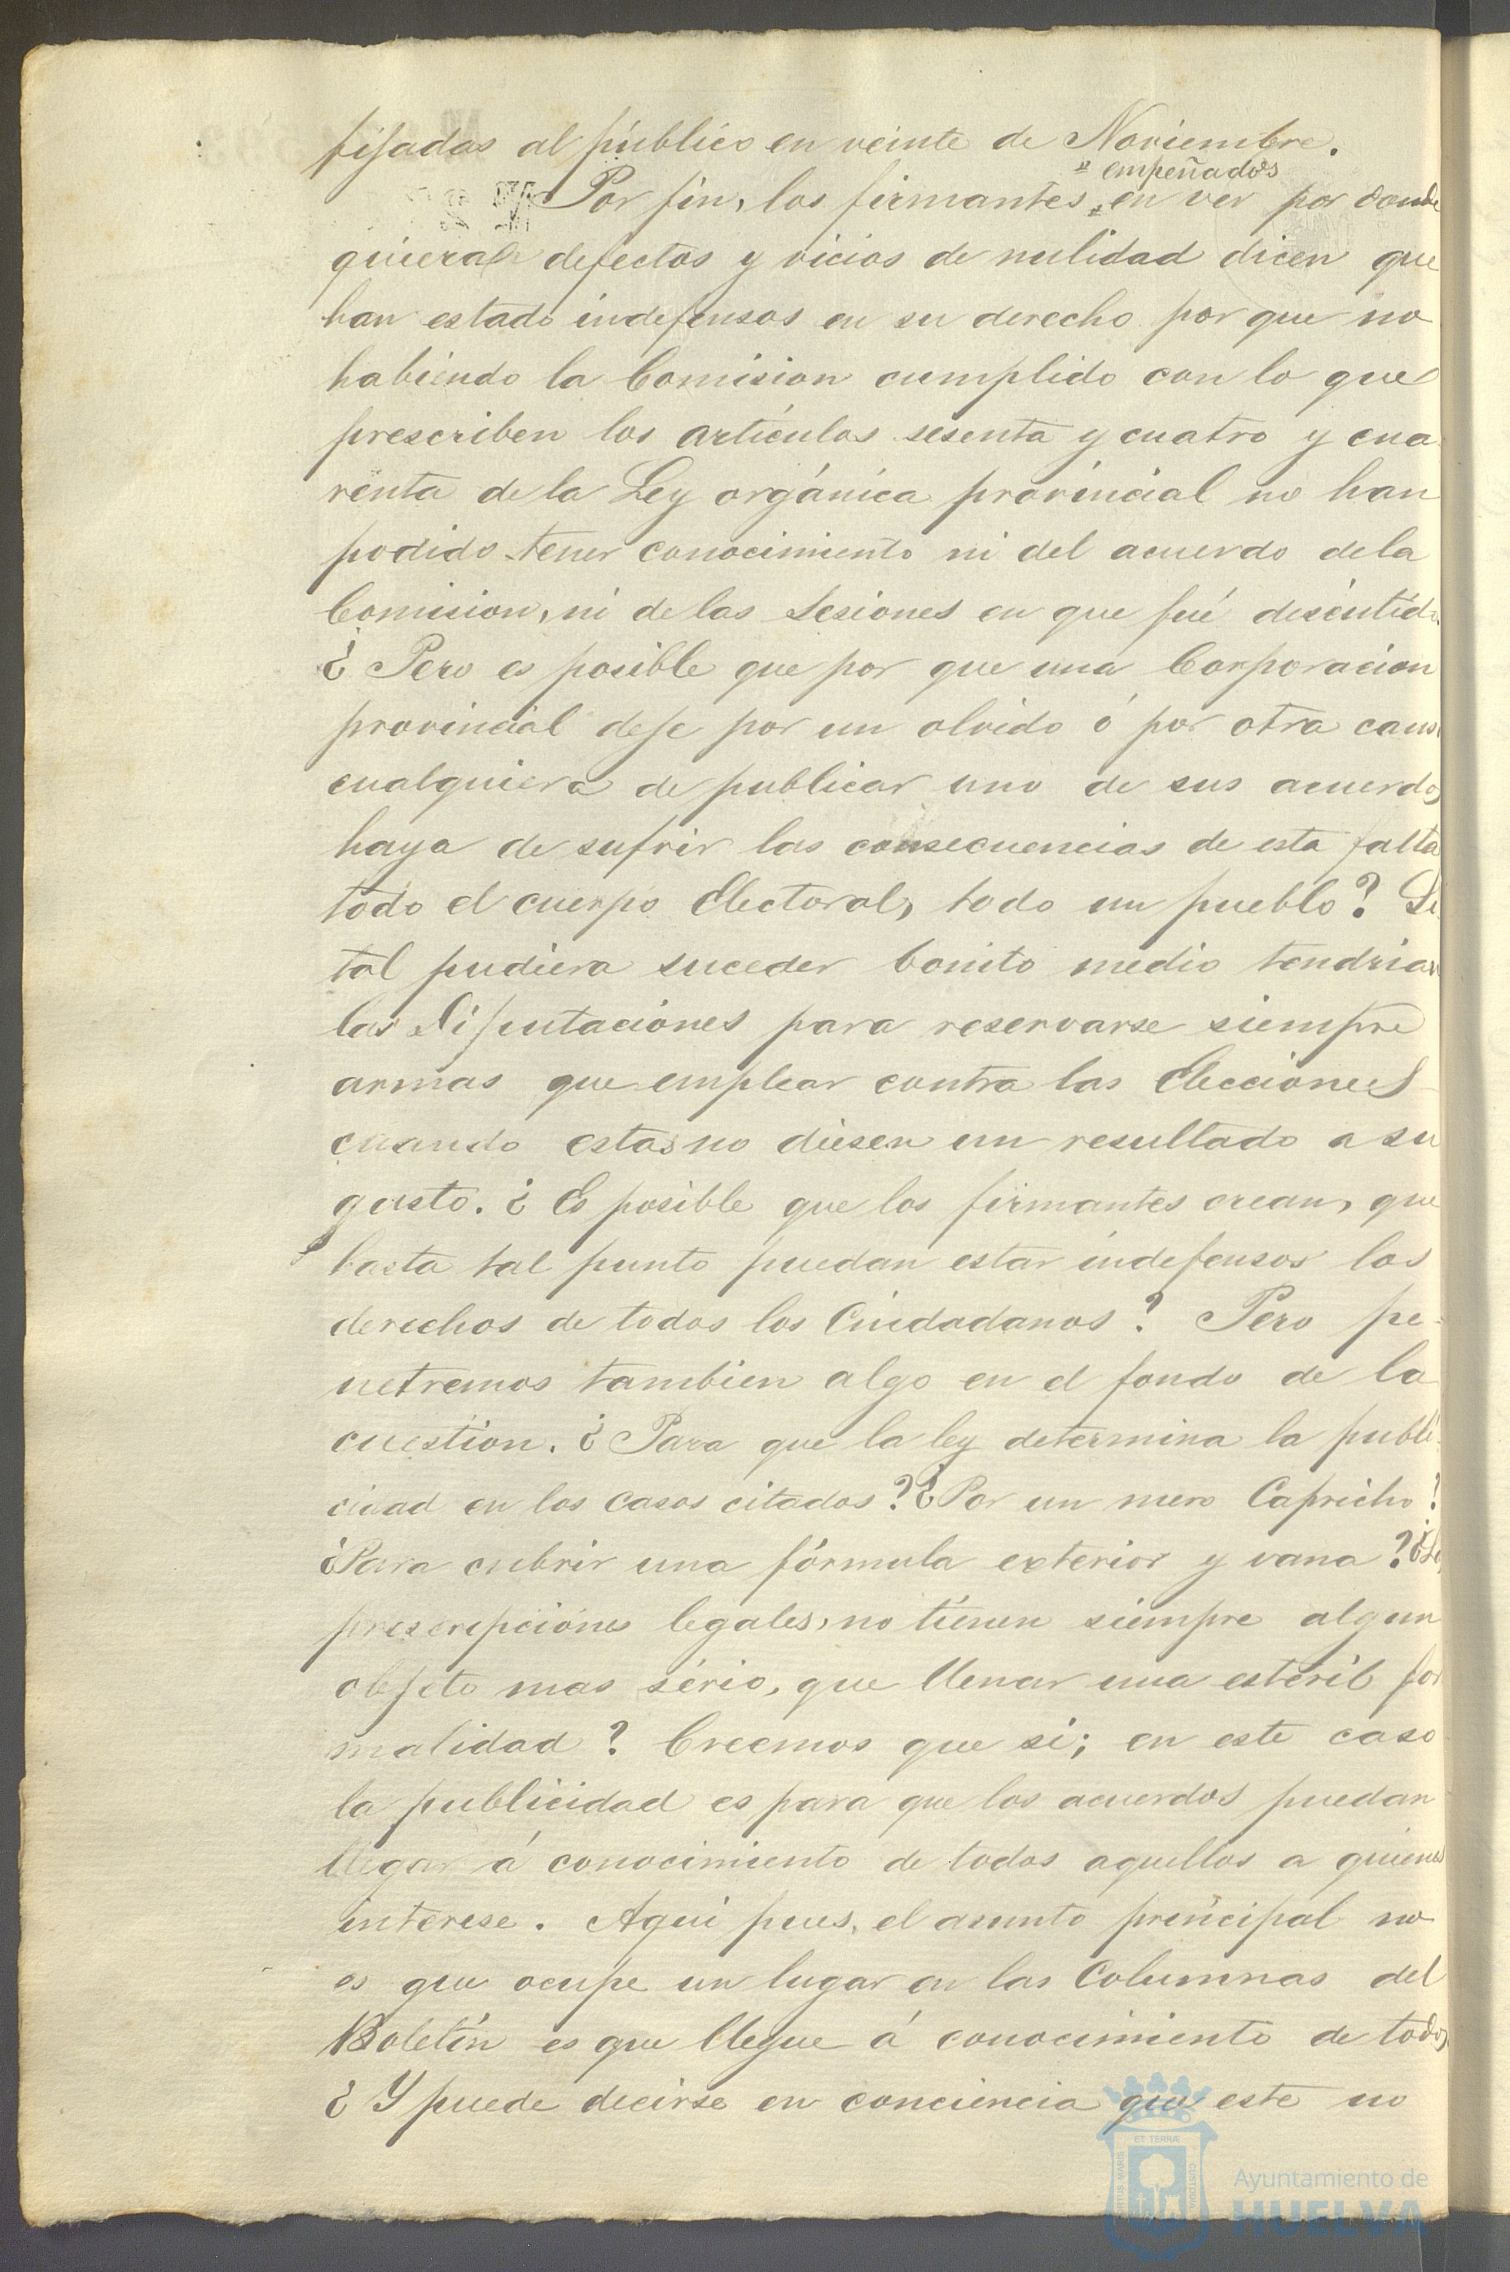 fijadas al público en veinte de Noviembre.
" empeñados
Por fin, los firmantes " en ver por donde
quiera defectos y vicios de nulidad dicen que
han estado indefensos en su derecho por que no
habiendo la Comision cumplido con lo que
prescriben los artículos sesenta y cuatro y cua
renta de la Ley orgánica provincial no han
podido tener conocimiento ni del acuerdo de la
Comision, ni de las Sesiones en que fué discutido.
¿ Pero es posible que por que una Corporacion
provincial deje por un olvido ó por otra causa
cualquiera de publicar uno de sus acuerdos,
haya de sufrir las consecuencias de esta falta
todo el cuerpo Electoral, todo un pueblo? Si
tal pudiera suceder bonito medio tendrian
las Diputaciones para reservarse siempre
armas que emplear contra las Elecciones
cuando estas no diesen un resultado a su
gusto. ¿ Es posible que los firmantes crean, que
hasta tal punto puedan estar indefensos los
derechos de todos los Ciudadanos? Pero pe-
netremos tambien algo en el fondo de la
cuestion. ¿ Para que la ley determina la publi
cidad en los casos citados? ¿ Por un mero Capricho?
¿Para cubrir una fórmula exterior y vana?
prescripciones legales, no tienen siempre algun
objeto mas sério, que llenar una esteril for
malidad? Creemos que si; en este caso
la publicidad es para que los acuerdos puedan
llegar á conocimiento de todos aquellos a quienes
interese. Aqui pues, el asunto principal no
es que ocupe un lugar en las Columnas del
Boletín es que llegue á conocimiento de todos,
¿ Y puede decirse en conciencia que este no
Ayuntamiento de
HUELVA